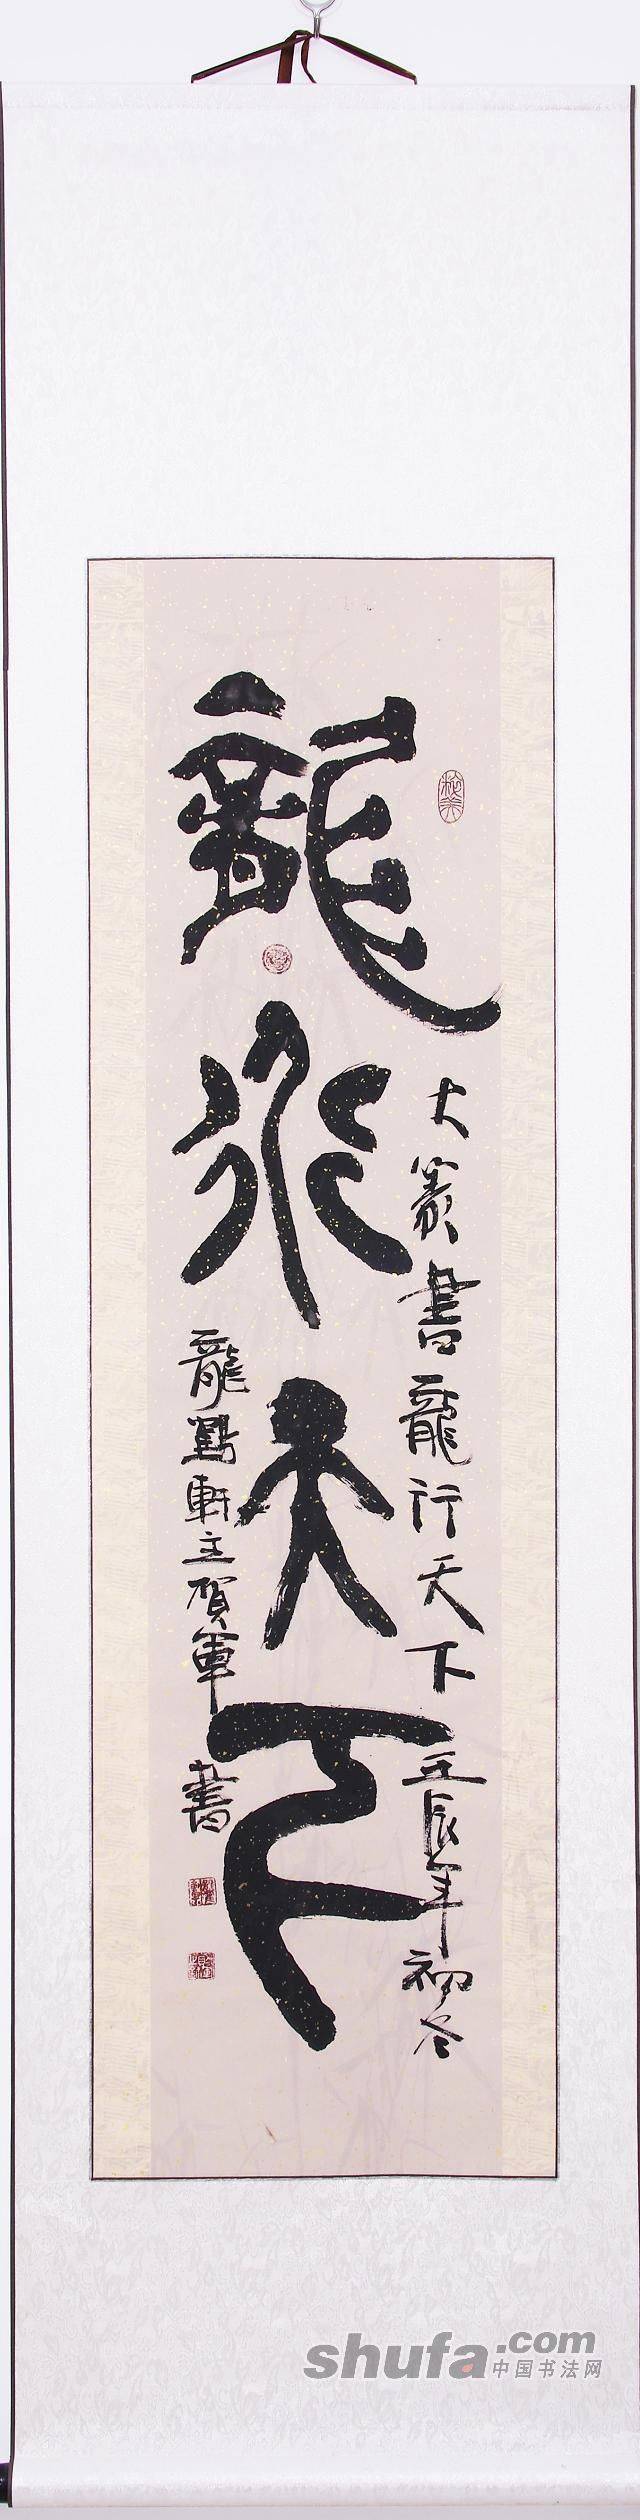 龍行天下
大篆書龍行天下
壬辰年初冬
龍點軒主賀軍書
shufa.com
中国书法网